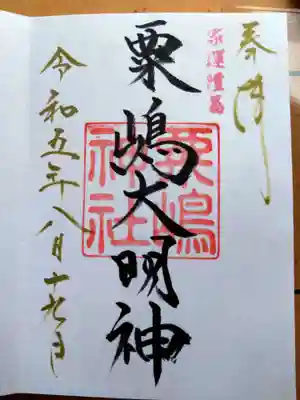 奉拝
家運隆昌
粟嶋大明神
粟嶋神社
令和五年八月十九日